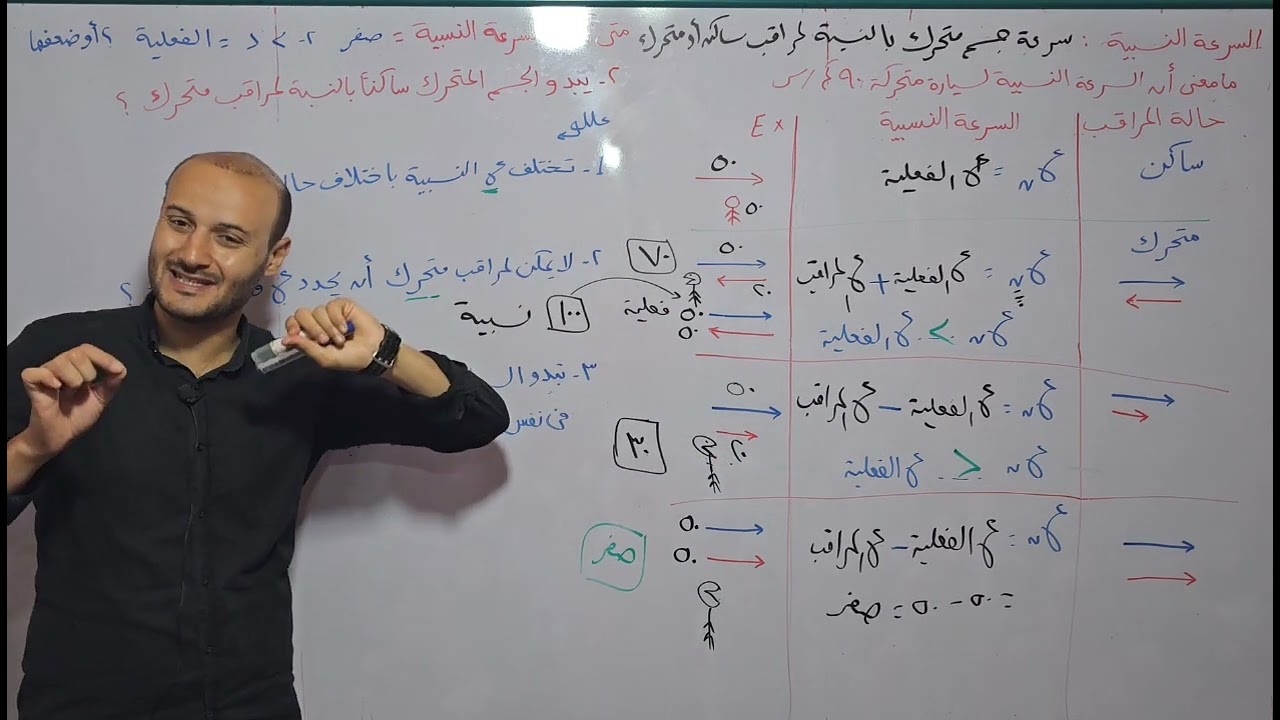 السرعة النسبية : سرعة جسم متحرك بالنسبة لمراقب ساكن أو متحرك
متى السرعة النسبية = صفر ٢- > < = الفعلية ؟ أو ضعفها
ما معنى أن السرعة النسبية لسيارة متحركة ٩٠ كم/س
٢- يبدو الجسم المتحرك ساكناً بالنسبة لمراقب متحرك ؟
حالة المراقب
السرعة النسبية
Ex
ساكن
عن = ع الفعلية
٥٠
٥٠
متحرك
عن = ع الفعلية + ع المراقب
عن > ع الفعلية
٧٠
٥٠
٢٠
١٠٠
نسبية
فعلية
٥٠
٥٠
عن = ع الفعلية - ع المراقب
عن < ع الفعلية
٥٠
٢٠
٣٠
عن = ع الفعلية - ع المراقب
= ٥٠ - ٥٠ = صفر
٥٠
٥٠
صفر
عللي
١- تختلف ع النسبية باختلاف
٢- لا يمكن لمراقب متحرك أن يحدد ع
؟
٣- تبدو ال
في نفس